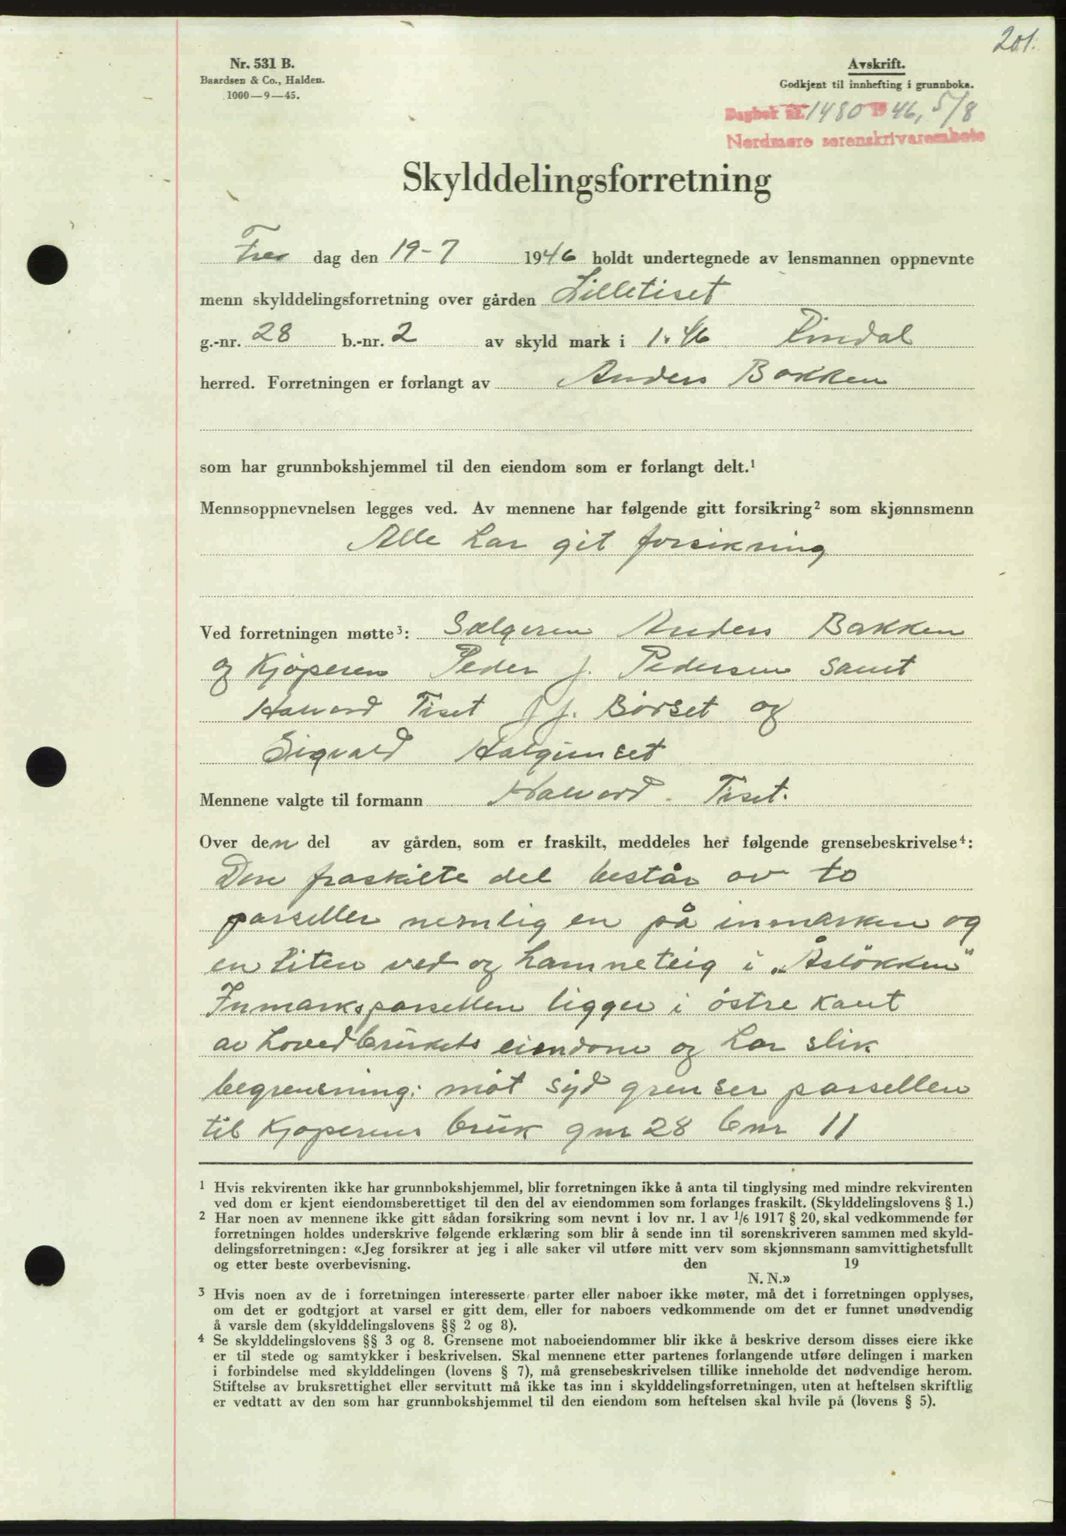 201.
Nr. 531 B.
Baardsen & Co., Halden.
1000—9—45.
Avskrift.
Godkjent til innhefting i grunnboka.
Dagbok nr. 1480 1946, 5/8
Nordmøre sorenskrivarembete
Skylddelingsforretning
Fre dag den 19-7 1946 holdt undertegnede av lensmannen oppnevnte
menn skylddelingsforretning over gården Lilletiset
g.-nr. 28 b.-nr. 2 av skyld mark i 1.46 Rindal
herred. Forretningen er forlangt av Anders Bakken
som har grunnbokshjemmel til den eiendom som er forlangt delt.¹
Mennsoppnevnelsen legges ved. Av mennene har følgende gitt forsikring² som skjønnsmenn
Alle har git forsikring
Ved forretningen møtte³: Sælgeren Anders Bakken
og Kjøperen Peder J. Pedersen samt
Halvord Tiset J. J. Børset og
Sigvald Halgunset
Mennene valgte til formann Halvord Tiset.
Over den del av gården, som er fraskilt, meddeles her følgende grensebeskrivelse⁴:
Den fraskilte del består av to
parseller nemlig en på inmarken og
en liten ved og hamneteig i „Åsløkken"
Inmarksparsellen ligger i østre kant
av hovedbrukets eiendom og har slik
begrensning: møt syd grenser parsellen
til Kjøperens bruk gnr 28 bnr 11
¹ Hvis rekvirenten ikke har grunnbokshjemmel, blir forretningen ikke å anta til tinglysing med mindre rekvirenten
ved dom er kjent eiendomsberettiget til den del av eiendommen som forlanges fraskilt. (Skylddelingslovens § 1.)
² Har noen av mennene ikke gitt sådan forsikring som nevnt i lov nr. 1 av 1/6 1917 § 20, skal vedkommende før
forretningen holdes underskrive følgende erklæring som blir å sende inn til sorenskriveren sammen med skyld-
delingsforretningen: «Jeg forsikrer at jeg i alle saker vil utføre mitt verv som skjønnsmann samvittighetsfullt
og etter beste overbevisning. den 19
N. N.»
³ Hvis noen av de i forretningen interesserte parter eller naboer ikke møter, må det i forretningen opplyses,
om det er godtgjort at varsel er gitt dem, eller for naboers vedkommende om det er funnet unødvendig
å varsle dem (skylddelingslovens §§ 2 og 8).
⁴ Se skylddelingslovens §§ 3 og 8. Grensene mot naboeiendommer blir ikke å beskrive dersom disses eiere ikke
er til stede og samtykker i beskrivelsen. Skal mennene etter partenes forlangende utføre delingen i marken
i forbindelse med skylddelingen (lovens § 7), må grensebeskrivelsen tillike inneholde det nødvendige herom.
Stiftelse av bruksrettighet eller servitutt må ikke tas inn i skylddelingsforretningen, uten at heftelsen skriftlig
er vedtatt av den som har grunnbokshjemmel til den eiendom som heftelsen skal hvile på (lovens § 5).